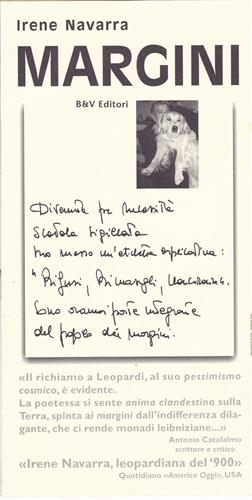 Irene Navarra
MARGINI
B&V Editori
Divenuta per necessità
Scatola sigillata
ho messo un'etichetta esplicativa:
"Rifiuti, Rimasugli,
Sono oramai parte integrante
del popolo dei margini.
«Il richiamo a Leopardi, al suo pessimismo
cosmico, è evidente.
La poetessa si sente anima clandestina sulla
Terra, spinta ai margini dall'indifferenza dila-
gante, che ci rende monadi leibniziane...»
Antonio Catafalmo
scrittore e critico
«Irene Navarra, leopardiana del '900»
Quotidiano «America Oggi», USA